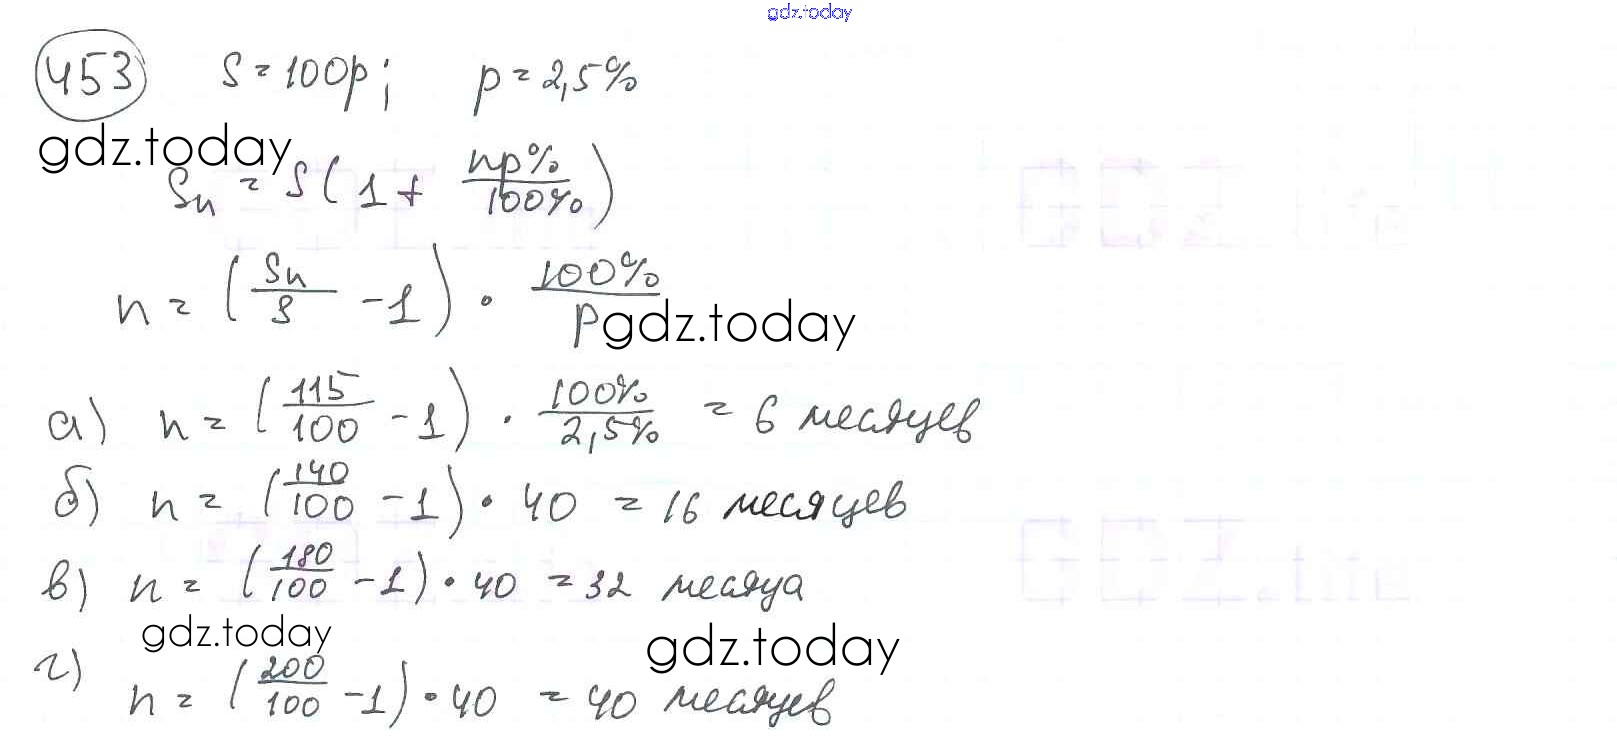 gdz.today
453 S = 100р; p = 2,5%
gdz.today
Sn = S(1 + np%/100%)
n = (Sn/S - 1) · 100%/P
gdz.today
а) n = (115/100 - 1) · 100%/2,5% = 6 месяцев
б) n = (140/100 - 1) · 40 = 16 месяцев
в) n = (180/100 - 1) · 40 = 32 месяца
gdz.today
gdz.today
г) n = (200/100 - 1) · 40 = 40 месяцев